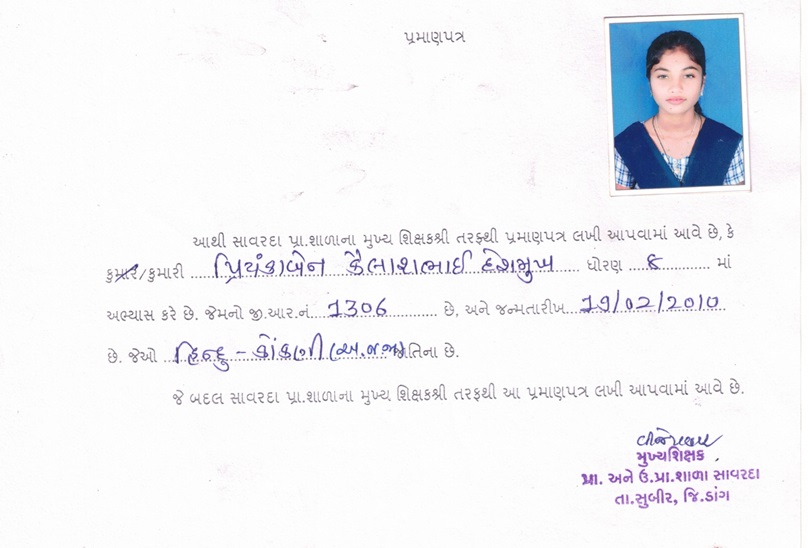 પ્રમાણપત્ર
આથી સાવરદા પ્રા.શાળાના મુખ્ય શિક્ષકશ્રી તરફથી પ્રમાણપત્ર લખી આપવામાં આવે છે, કે
કુમાર/કુમારી ...પ્રિયંકાબેન કૈલાશભાઈ દેશમુખ... ધોરણ ...૮... માં
અભ્યાસ કરે છે. જેમનો જી.આર.નં...1306... છે, અને જન્મતારીખ...19/02/2010
છે. જેઓ ...હિન્દુ - કોંકણી (અ.જ.જા)તિના છે.
જે બદલ સાવરદા પ્રા.શાળાના મુખ્ય શિક્ષકશ્રી તરફથી આ પ્રમાણપત્ર લખી આપવામાં આવે છે.
મુખ્યશિક્ષક
પ્રા. અને ઉ.પ્રા.શાળા સાવરદા
તા.સુબીર, જિ.ડાંગ